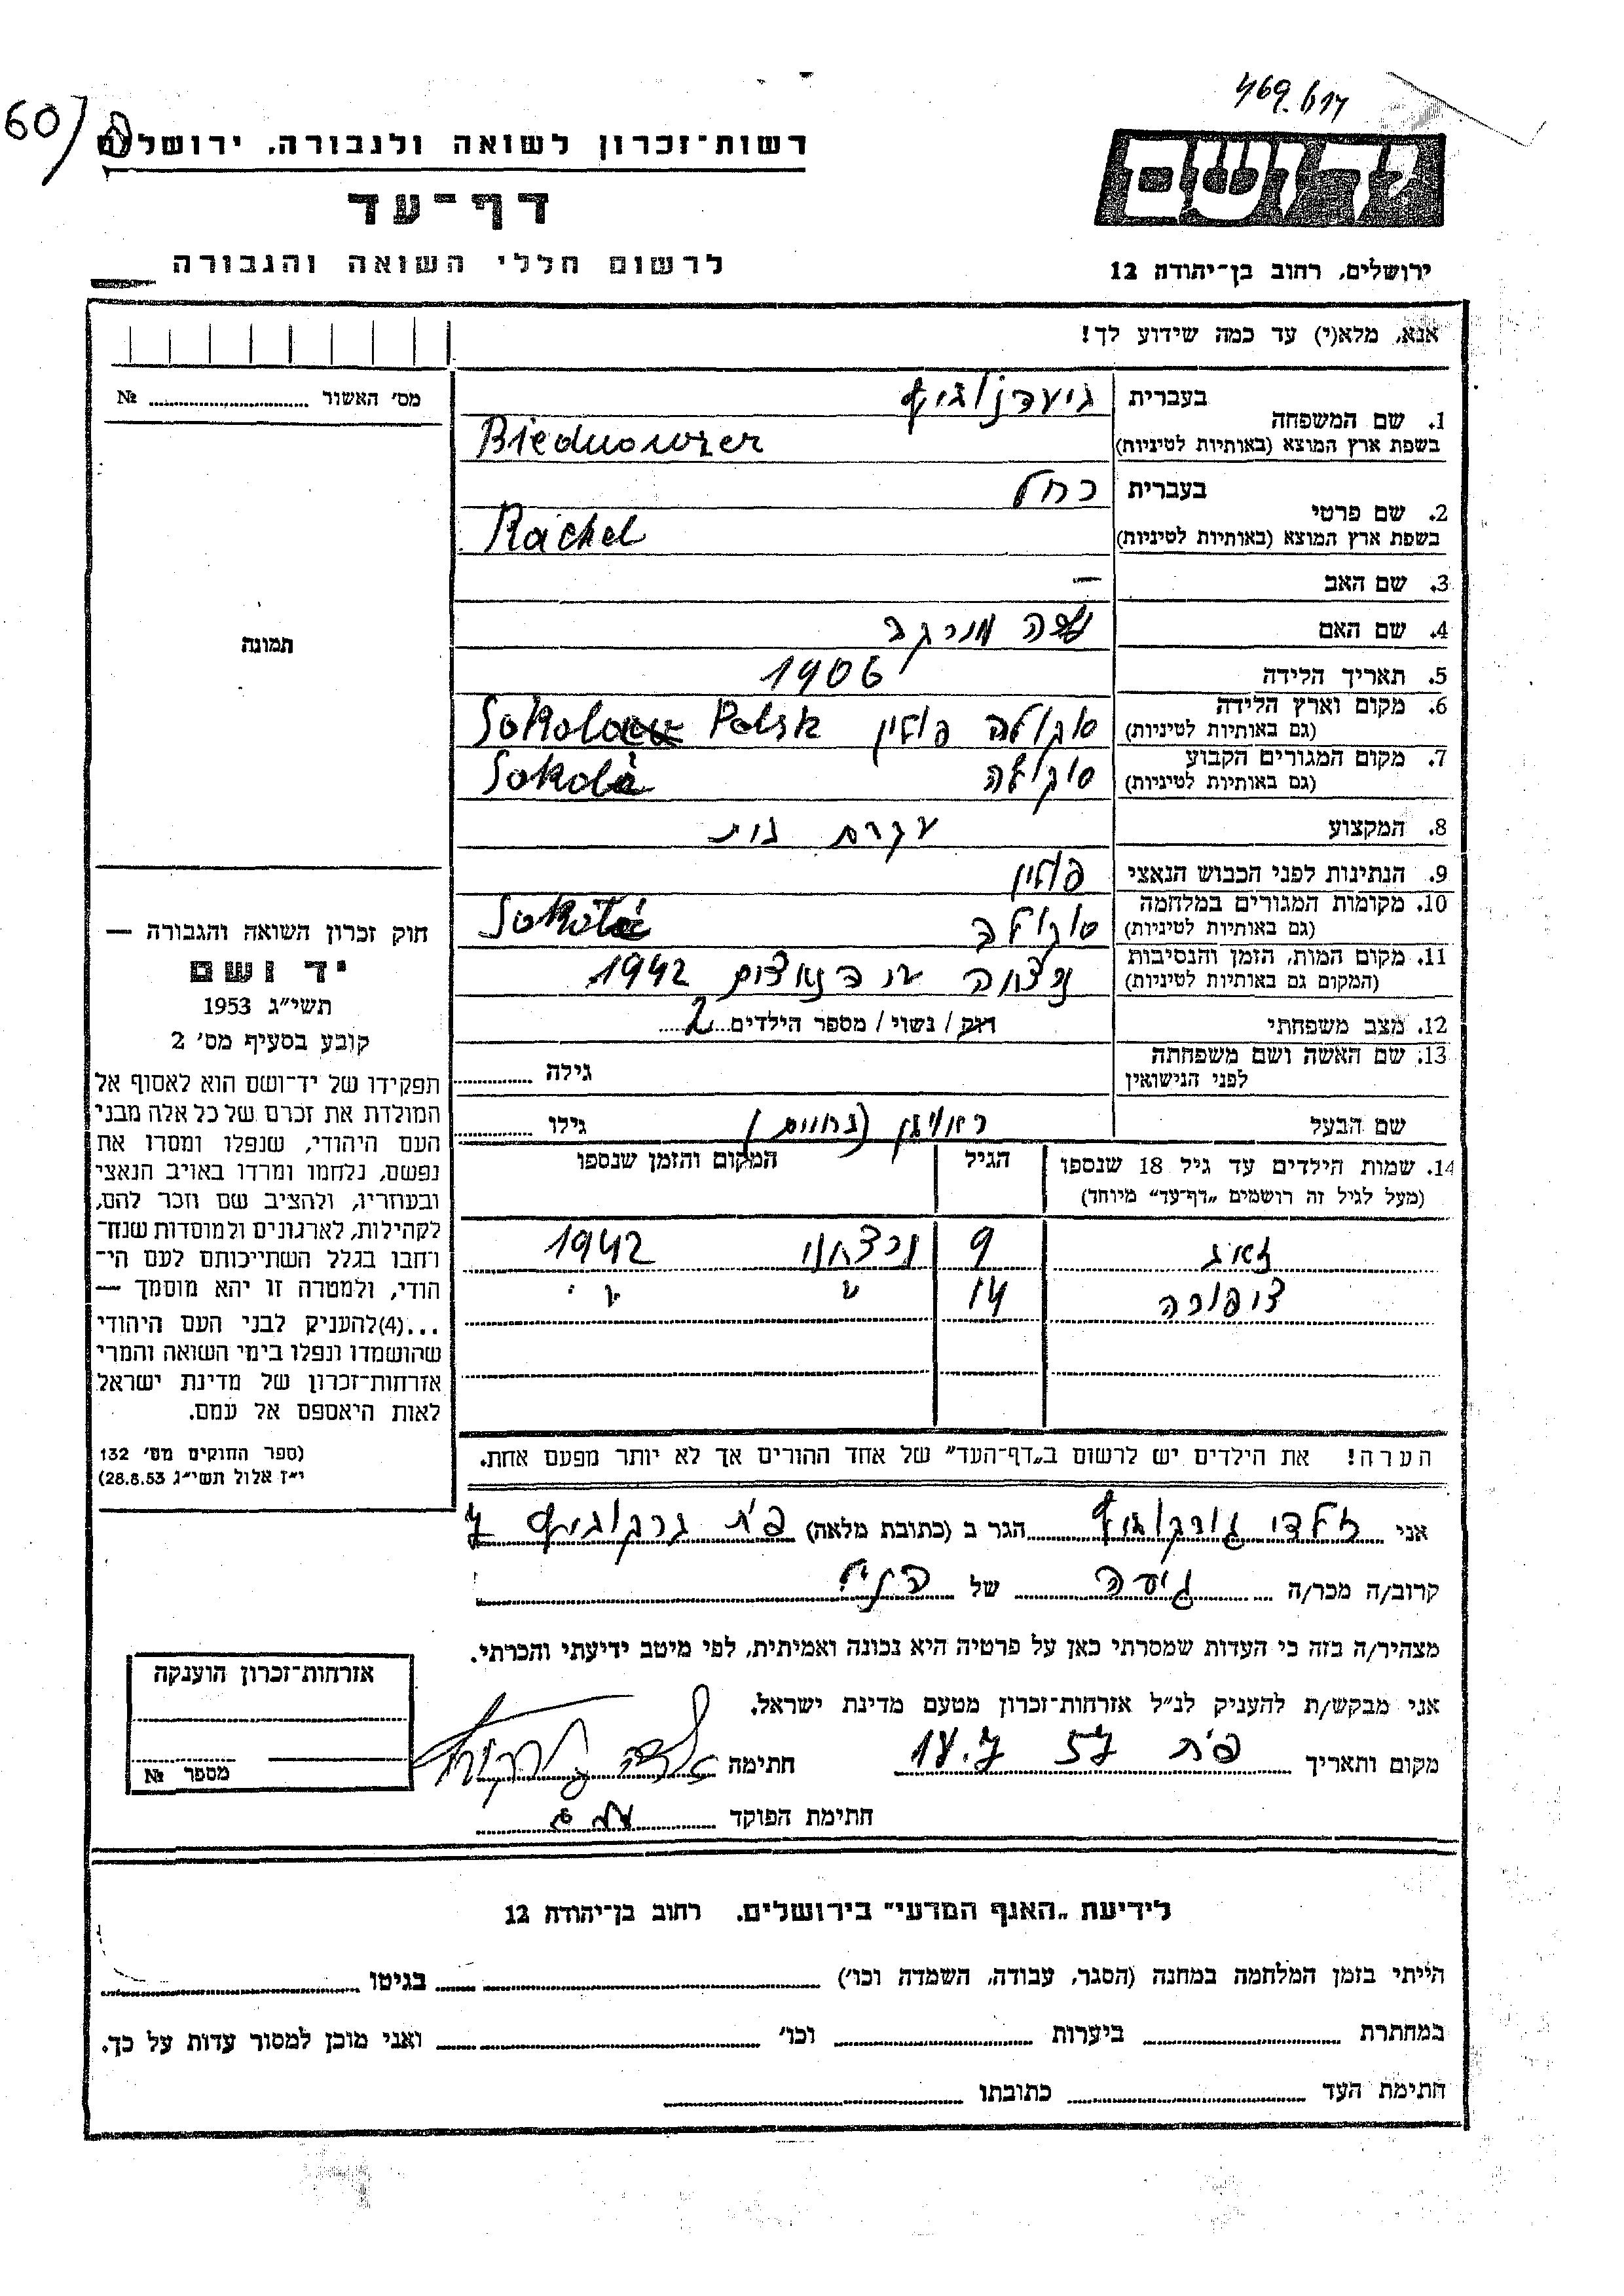 469.617
60/
רשות־זכרון לשואה ולגבורה, ירושלים
דף־עד
לרשום חללי השואה והגבורה
יד ושם
ירושלים, רחוב בן־יהודה 12
אנא, מלא(י) עד כמה שידוע לך!
מס' האשור № 
1. שם המשפחה
בעברית
בשפת ארץ המוצא (באותיות לטיניות) Biednowzer
2. שם פרטי
בעברית רחל
בשפת ארץ המוצא (באותיות לטיניות) Rachel
3. שם האב —
4. שם האם
5. תאריך הלידה 1906
6. מקום וארץ הלידה
(גם באותיות לטיניות) סוקולה פולין Polsk
7. מקום המגורים הקבוע
(גם באותיות לטיניות) סוקולה Sokola
8. המקצוע עקרת בית
9. הנתינות לפני הכבוש הנאצי פולין
10. מקומות המגורים במלחמה
(גם באותיות לטיניות) סוקולה
11. מקום המות, הזמן והנסיבות
(המקום גם באותיות לטיניות) נרצחה ע״י הנאצים 1942
12. מצב משפחתי רוק / נשוי / מספר הילדים 2
13. שם האשה ושם משפחתה
לפני הנישואין
גילה
שם הבעל
גילו
14. שמות הילדים עד גיל 18 שנספו
(מעל לגיל זה רושמים „דף־עד" מיוחד)
הגיל
המקום והזמן שנספו
זאב 9 נרצחו 1942
צפורה 14 " "
הערה! את הילדים יש לרשום ב„דף־העד" של אחד ההורים אך לא יותר מפעם אחת.
תמונה
חוק זכרון השואה והגבורה —
יד ושם
תשי״ג 1953
קובע בסעיף מס' 2
תפקידו של יד־ושם הוא לאסוף אל
המולדת את זכרם של כל אלה מבני
העם היהודי, שנפלו ומסרו את
נפשם, נלחמו ומרדו באויב הנאצי
ובעוזריו, ולהציב שם וזכר להם,
לקהילות, לארגונים ולמוסדות שנח־
רחבו בגלל השתייכותם לעם הי־
הודי, ולמטרה זו יהא מוסמך —
...(4)להעניק לבני העם היהודי
שהושמדו ונפלו בימי השואה והמרי
אזרחות־זכרון של מדינת ישראל
לאות היאספם אל עמם.
(ספר החוקים מס' 132
י״ז אלול תשי״ג 28.8.53)
אני הגר ב (כתובת מלאה) פ״ת
קרוב/ה מכר/ה גיסה של הנ״ל
מצהיר/ה בזה כי העדות שמסרתי כאן על פרטיה היא נכונה ואמיתית, לפי מיטב ידיעתי והכרתי.
אני מבקש/ת להעניק לנ״ל אזרחות־זכרון מטעם מדינת ישראל.
מקום ותאריך פ״ת
חתימה
חתימת הפוקד
אזרחות־זכרון הוענקה
מספר №
לידיעת „האגף המדעי" בירושלים, רחוב בן־יהודה 12
הייתי בזמן המלחמה במחנה (הסגר, עבודה, השמדה וכו') בגיטו
במחתרת ביערות וכו' ואני מוכן למסור עדות על כך.
חתימת העד כתובתו